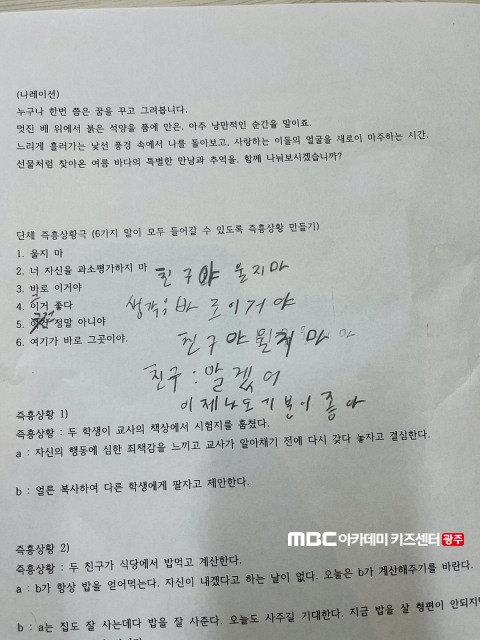 (나레이션)
누구나 한번 쯤은 꿈을 꾸고 그려봅니다.
멋진 배 위에서 붉은 석양을 품에 안은, 아주 낭만적인 순간을 말이죠.
느리게 흘러가는 낯선 풍경 속에서 나를 돌아보고, 사랑하는 이들의 얼굴을 새로이 마주하는 시간.
선물처럼 찾아온 여름 바다의 특별한 만남과 추억을, 함께 나눠보시겠습니까?
단체 즉흥상황극 (6가지 말이 모두 들어갈 수 있도록 즉흥상황 만들기)
1. 울지 마
2. 너 자신을 과소평가하지 마
친구야 울지마
3. 바로 이거야
4. 이거 좋다
생각: 바로이거야
5. 정말 아니야
6. 여기가 바로 그곳이야.
친구야 울지 마
친구: 알겠어
이제나도기분이 좋아
즉흥상황 1)
즉흥상황 : 두 학생이 교사의 책상에서 시험지를 훔쳤다.
a : 자신의 행동에 심한 죄책감을 느끼고 교사가 알아채기 전에 다시 갖다 놓자고 결심한다.
b : 얼른 복사하여 다른 학생에게 팔자고 제안한다.
MBC아카데미 키즈센터 광주
즉흥상황 2)
즉흥상황 : 두 친구가 식당에서 밥먹고 계산한다.
a : b가 항상 밥을 얻어먹는다. 자신이 내겠다고 하는 날이 없다. 오늘은 b가 계산해주기를 바란다.
b : a는 집도 잘 사는데다 밥을 잘 사준다. 오늘도 사주길 기대한다. 지금 밥을 살 형편이 안되지만